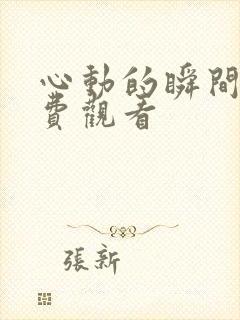 心動的瞬間
費觀看
張新